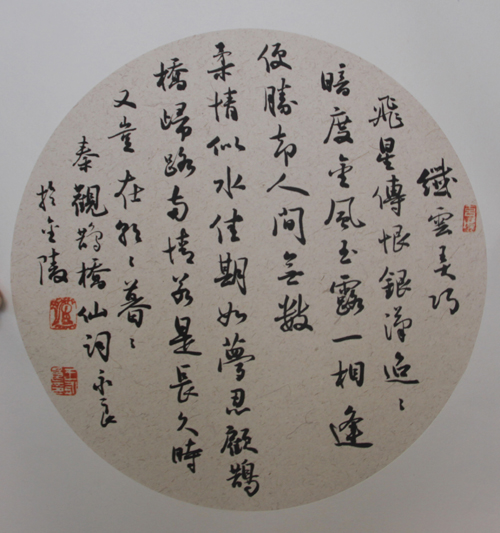 纖雲弄巧
飛星傳恨銀漢迢〻
暗度金風玉露一相逢
便勝却人間無數
柔情似水佳期如夢忍顧鵲
橋歸路兩情若是長久時
又豈在朝〻暮〻
秦觀鵲橋仙詞永良
於金陵